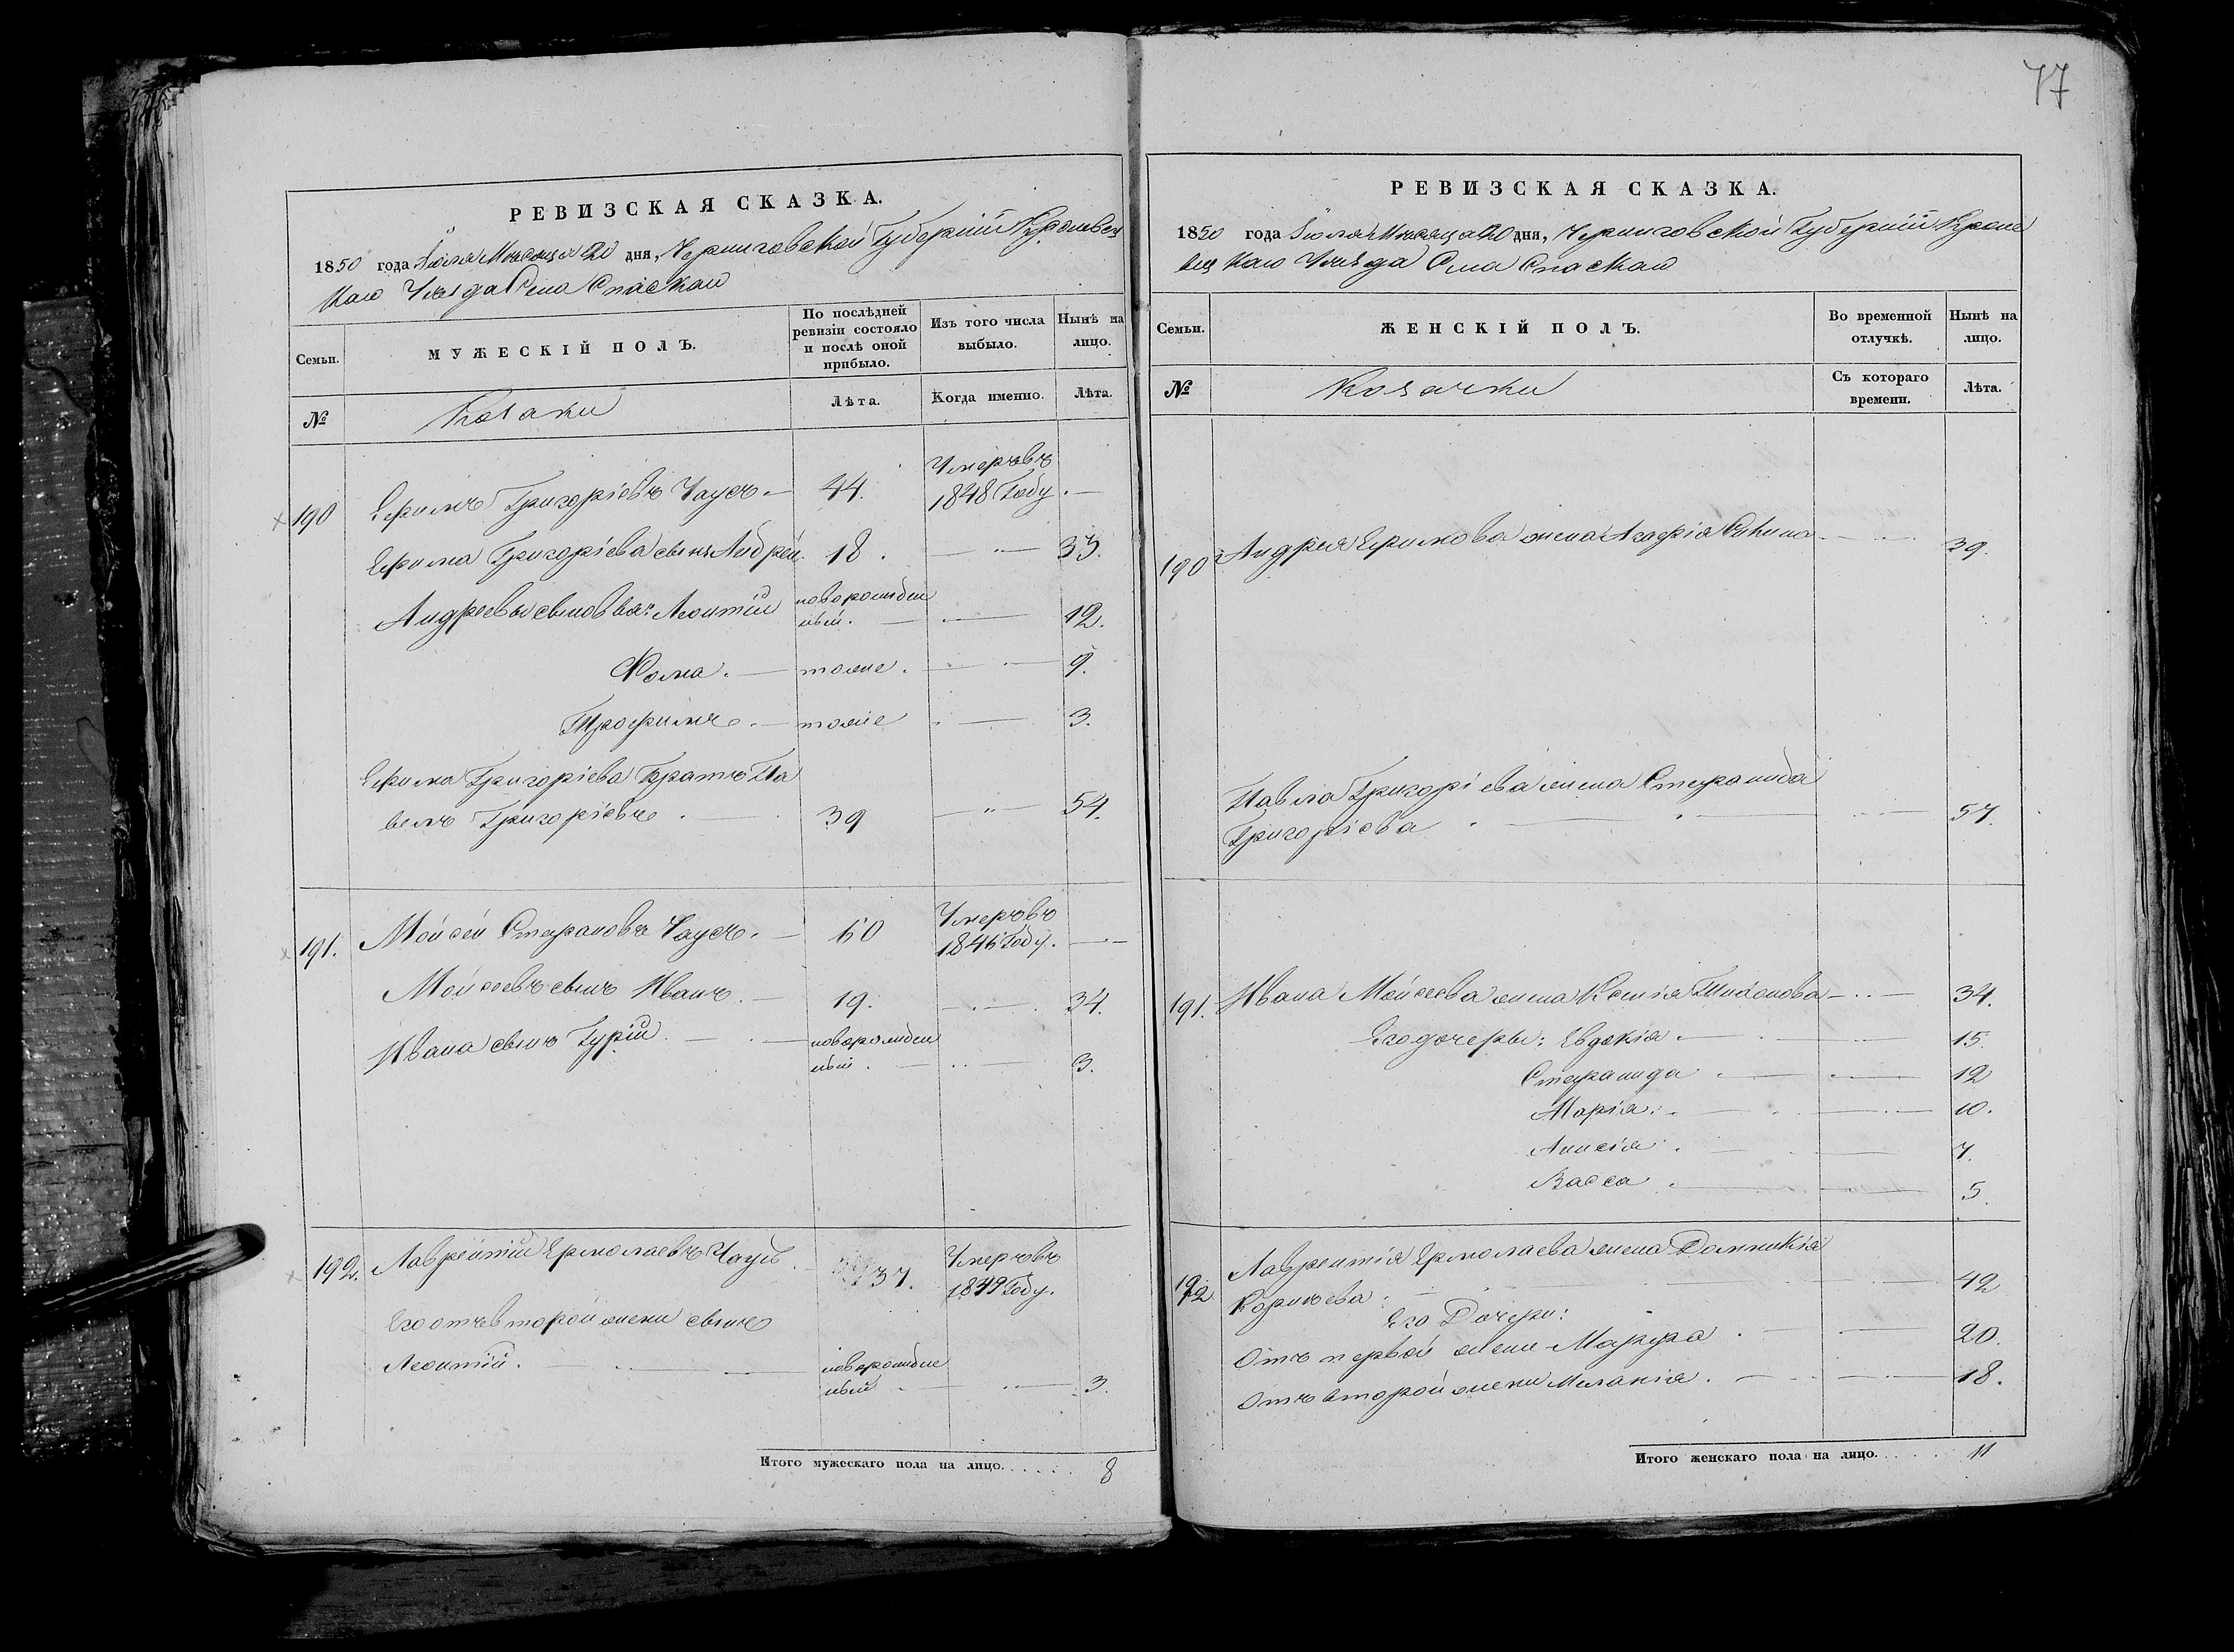 77
РЕВИЗСКАЯ СКАЗКА.
1850 года Іюля Месяца 20 дня, Черниговской Губерніи Кролевец
каго Уезда Села Спаскаго
Семьи.
МУЖЕСКІЙ ПОЛЪ.
По послѣдней
ревизіи состояло
и послѣ оной
прибыло.
Изъ того числа
выбыло.
Нынѣ на
лицо.
№
Козаки
Лѣта.
Когда именно.
Лѣта.
190
Ефимъ Григоріевъ Чаусъ 44. Умеръ въ
1848 Году.
Ефима Григоріева сынъ Андрей 18. 33.
Андреевы сыновья: Леонтій новорожден
ный. 12.
Фома. тоже. 9.
Трофимъ. тоже 3.
Ефима Григоріева Братъ Па
велъ Григоріевъ 39 54.
191. Мойсей Стефановъ Чаусъ. 60 Умеръ въ
1846 Году.
Мойсеевъ сынъ Иванъ 19. 34.
Ивана сынъ Гурій новорожден
ный. 3.
192. Лаврентій Ермолаевъ Чаусъ 37. Умеръ въ
1849 Году.
Его отъ второй жены сынъ
Леонтій. новорожден
ный 3.
Итого мужескаго пола на лицо. 8
РЕВИЗСКАЯ СКАЗКА.
1850 года Іюля Месяца 20 дня, Черниговской Губерніи Кроле
вец каго Уезда Села Спаскаго
Семьи.
ЖЕНСКІЙ ПОЛЪ.
Во временной
отлучкѣ.
Нынѣ на
лицо.
№
Козачки
Съ котораго
времени.
Лѣта.
190 Андрея Ефимова жена Агафія 39.
Павла Григоріева жена Стефанида
Григоріева 57.
191. Ивана Мойсеева жена Ксенія 34.
Его дочеры: Евдокія 15.
Стефанида 12
Марія. 10.
Анисія 7.
Васса 5.
192 Лаврентія Ермолаева жена Домникія
Корнѣева 42
Его Дочери:
Отъ первой жены Марфа 20.
Отъ второй жены Меланія. 18.
Итого женскаго пола на лицо. 11